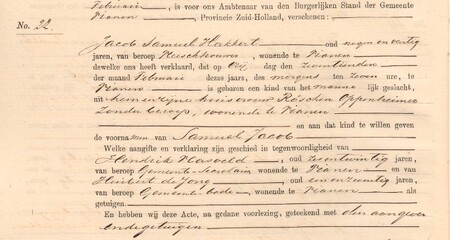 Februari, is voor ons Ambtenaar van den Burgerlijken Stand der Gemeente
Vianen, Provincie Zuid-Holland, verschenen:
No. 22.
Jacob Samuel Hakkert oud negen en veertig
jaren, van beroep Vleeschhouwer, wonende te Vianen
dewelke ons heeft verklaard, dat op dag den zeventienden
der maand Februari dezes jaars, des morgens ten zeven ure, te
Vianen is geboren een kind van het mannelijk geslacht,
uit hem en zijne huisvrouw Röschen Oppenheimer
zonder beroep, wonende te Vianen
en aan dat kind te willen geven
de voornamen van Samuel Jacob
Welke aangifte en verklaring zijn geschied in tegenwoordigheid van
Hendrik, oud jaren,
van beroep Gemeente-Secretaris wonende te Vianen en van
Huibert de Jong, oud jaren,
van beroep Gemeentebode, wonende te Vianen als
getuigen.
En hebben wij deze Acte, na gedane voorlezing, geteekend met den aangever
en de getuigen